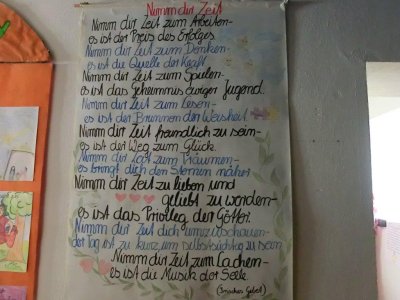 Nimm dir Zeit
Nimm dir Zeit zum Arbeiten-
es ist der Preis des Erfolges
Nimm dir Zeit zum Denken-
es ist die Quelle der Kraft
Nimm dir Zeit zum Spielen-
es ist das Geheimnis ewiger Jugend.
Nimm dir Zeit zum Lesen-
es ist der Brunnen der Weisheit.
Nimm dir Zeit freundlich zu sein-
es ist der Weg zum Glück.
Nimm dir Zeit zum Träumen-
es bringt dich den Sternen näher
Nimm dir Zeit zu lieben und
geliebt zu werden-
es ist das Privileg der Götter.
Nimm dir Zeit dich umzuschauen-
der Tag ist zu kurz um selbstsüchtig zu sein
Nimm dir Zeit zum Lachen-
es ist die Musik der Seele.
(Irisches Gebet)